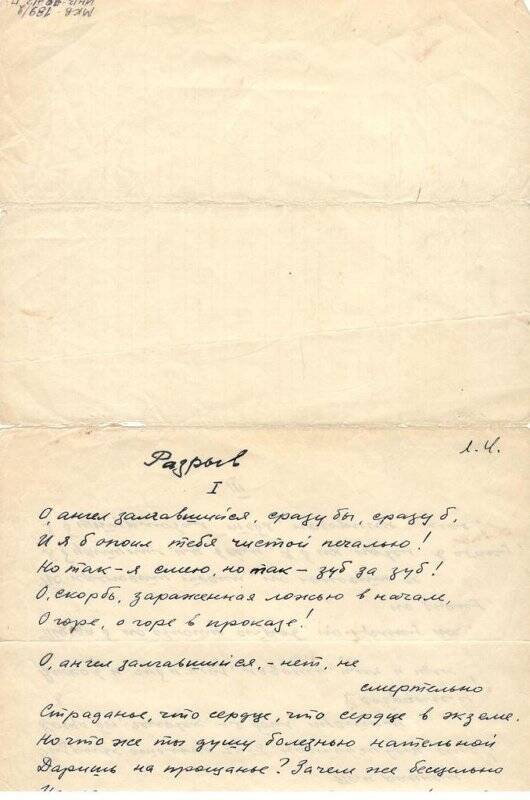 МКВ-189/9
Л.Ч.
Разрыв
I
О, ангел залгавшийся, сразу бы, сразу б,
И я б опоил тебя чистой печалью!
Но так – я смею, но так – зуб за зуб!
О, скорбь, зараженная ложью в начале,
О горе, о горе в проказе!
О, ангел залгавшийся, – нет, не
смертельно
Страданье, что сердце, что сердце в экземе.
Но что же ты душу болезнью нательной
Даришь на прощанье? Зачем же бесцельно